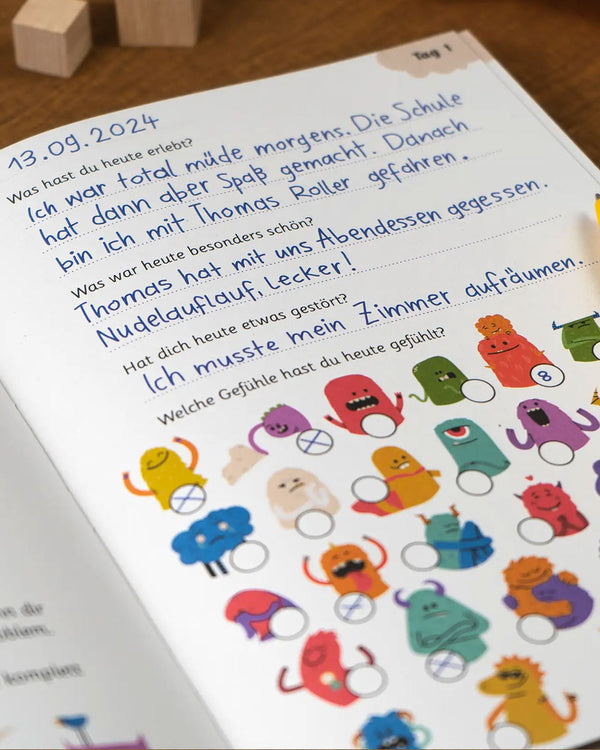 Tag 1
13.09.2024
Was hast du heute erlebt?
Ich war total müde morgens. Die Schule
hat dann aber Spaß gemacht. Danach
bin ich mit Thomas Roller gefahren.
Was war heute besonders schön?
Thomas hat mit uns Abendessen gegessen.
Nudelauflauf, Lecker!
Hat dich heute etwas gestört?
Ich musste mein Zimmer aufräumen.
Welche Gefühle hast du heute gefühlt?
8
komplett